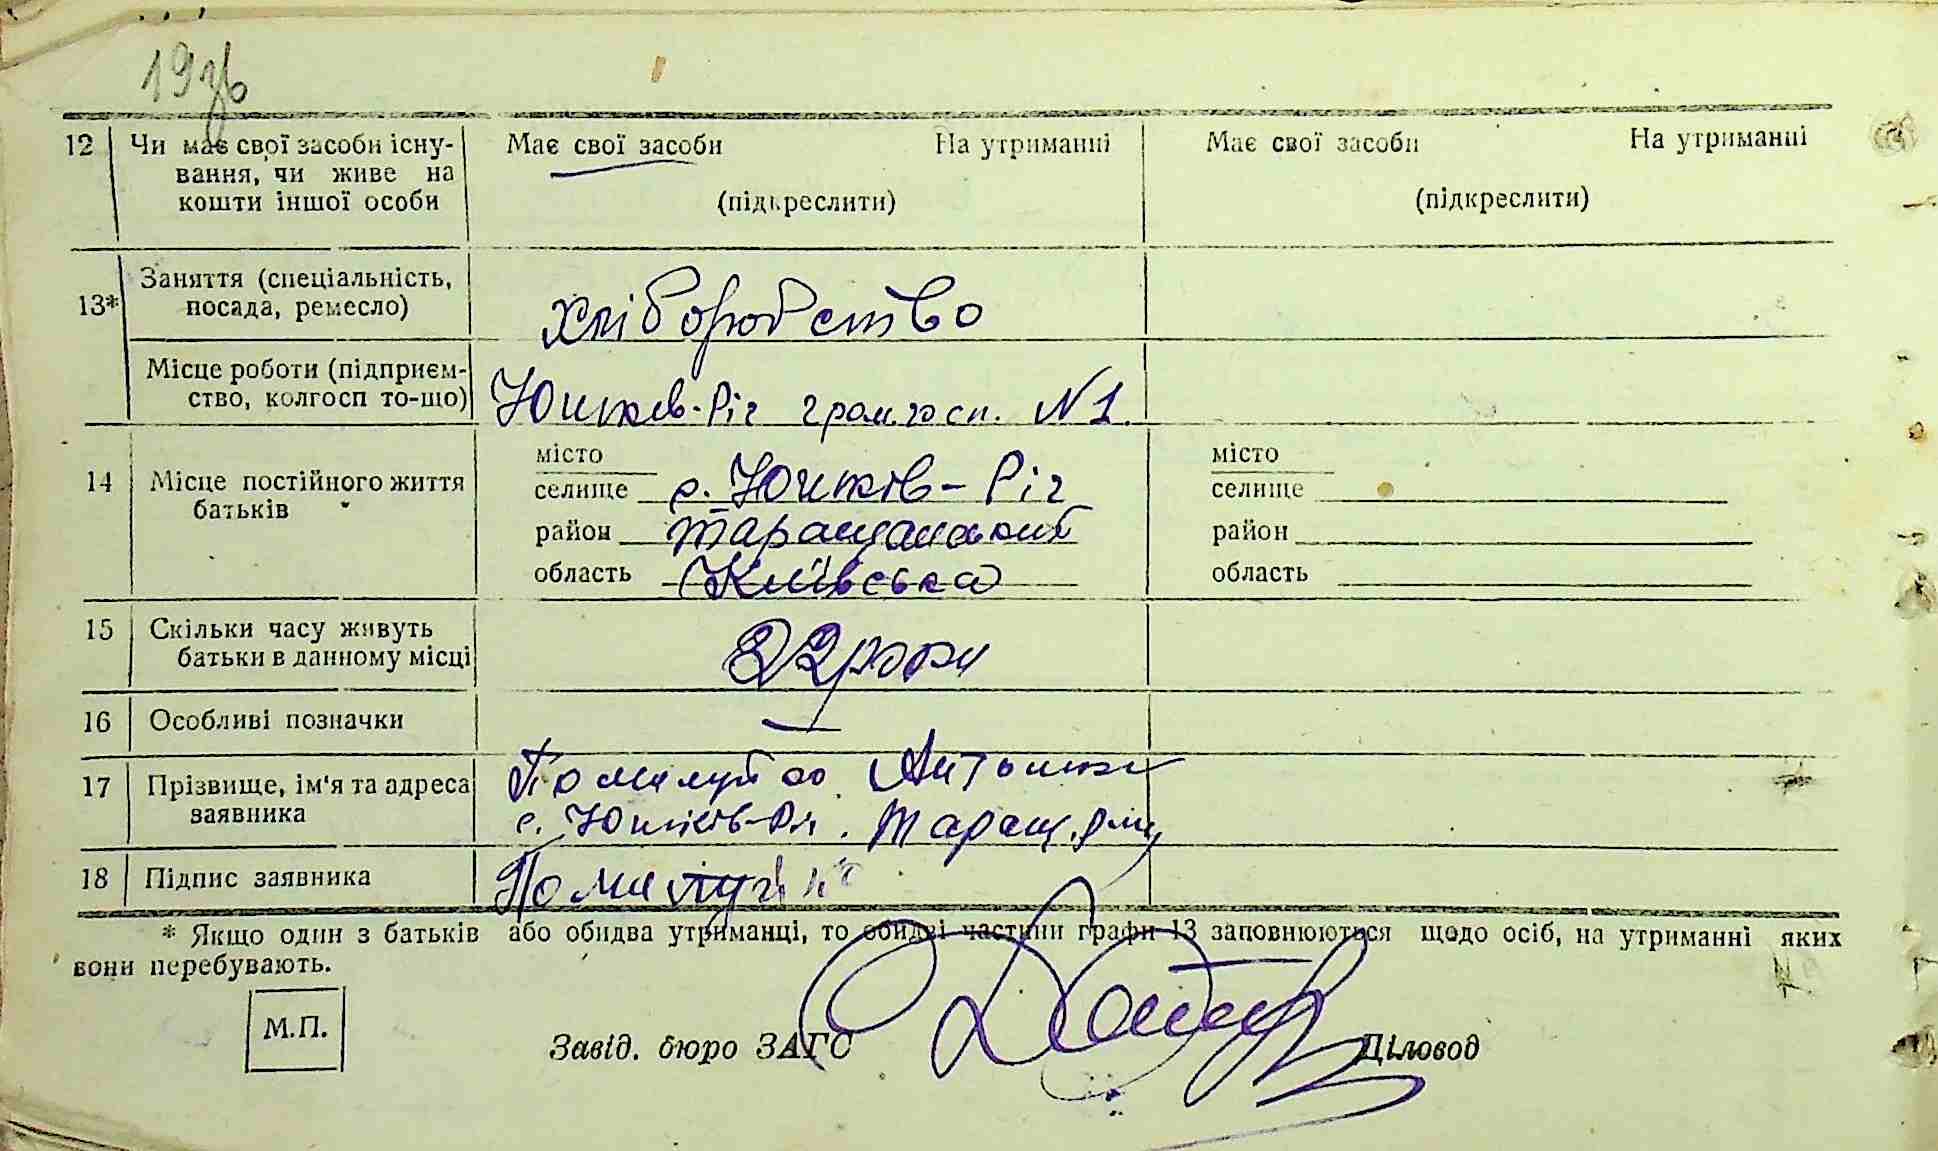 19зв
12 Чи має свої засоби існу- Має свої засоби На утриманні Має свої засоби На утриманні
вання, чи живе на
кошти іншої особи (підкреслити) (підкреслити)
Заняття (спеціальність,
13* посада, ремесло) хліборобство
Місце роботи (підприєм-
ство, колгосп то-що) Юшков-Ріг гром. госп. №1.
місто місто
14 Місце постійного життя селище с. Юшків-Ріг селище
батьків район Таращанський район
область Київська область
15 Скільки часу живуть
батьки в данному місці 22 роки
16 Особливі позначки —
17 Прізвище, ім'я та адреса Помилуйко Антошки
заявника с. Юшків-Ріг. Таращ.
18 Підпис заявника Помилуйко
* Якщо один з батьків або обидва утриманці, то обидві частини графи 13 заповнюються щодо осіб, на утриманні яких
вони перебувають.
М.П.
Завід. бюро ЗАГС Діловод